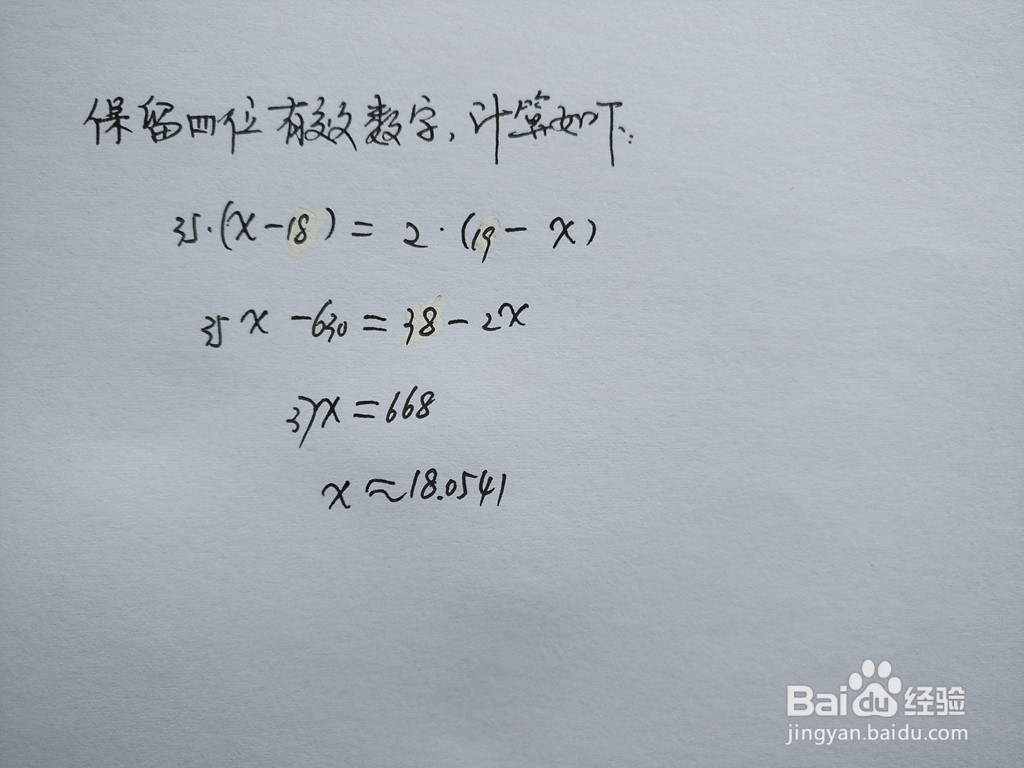 保留四位有效数字,计算如下:
35·(x-18)=2·(19-x)
35x-630=38-2x
37x=668
x≈18.0541
Baidu经验
jingyan.baidu.com